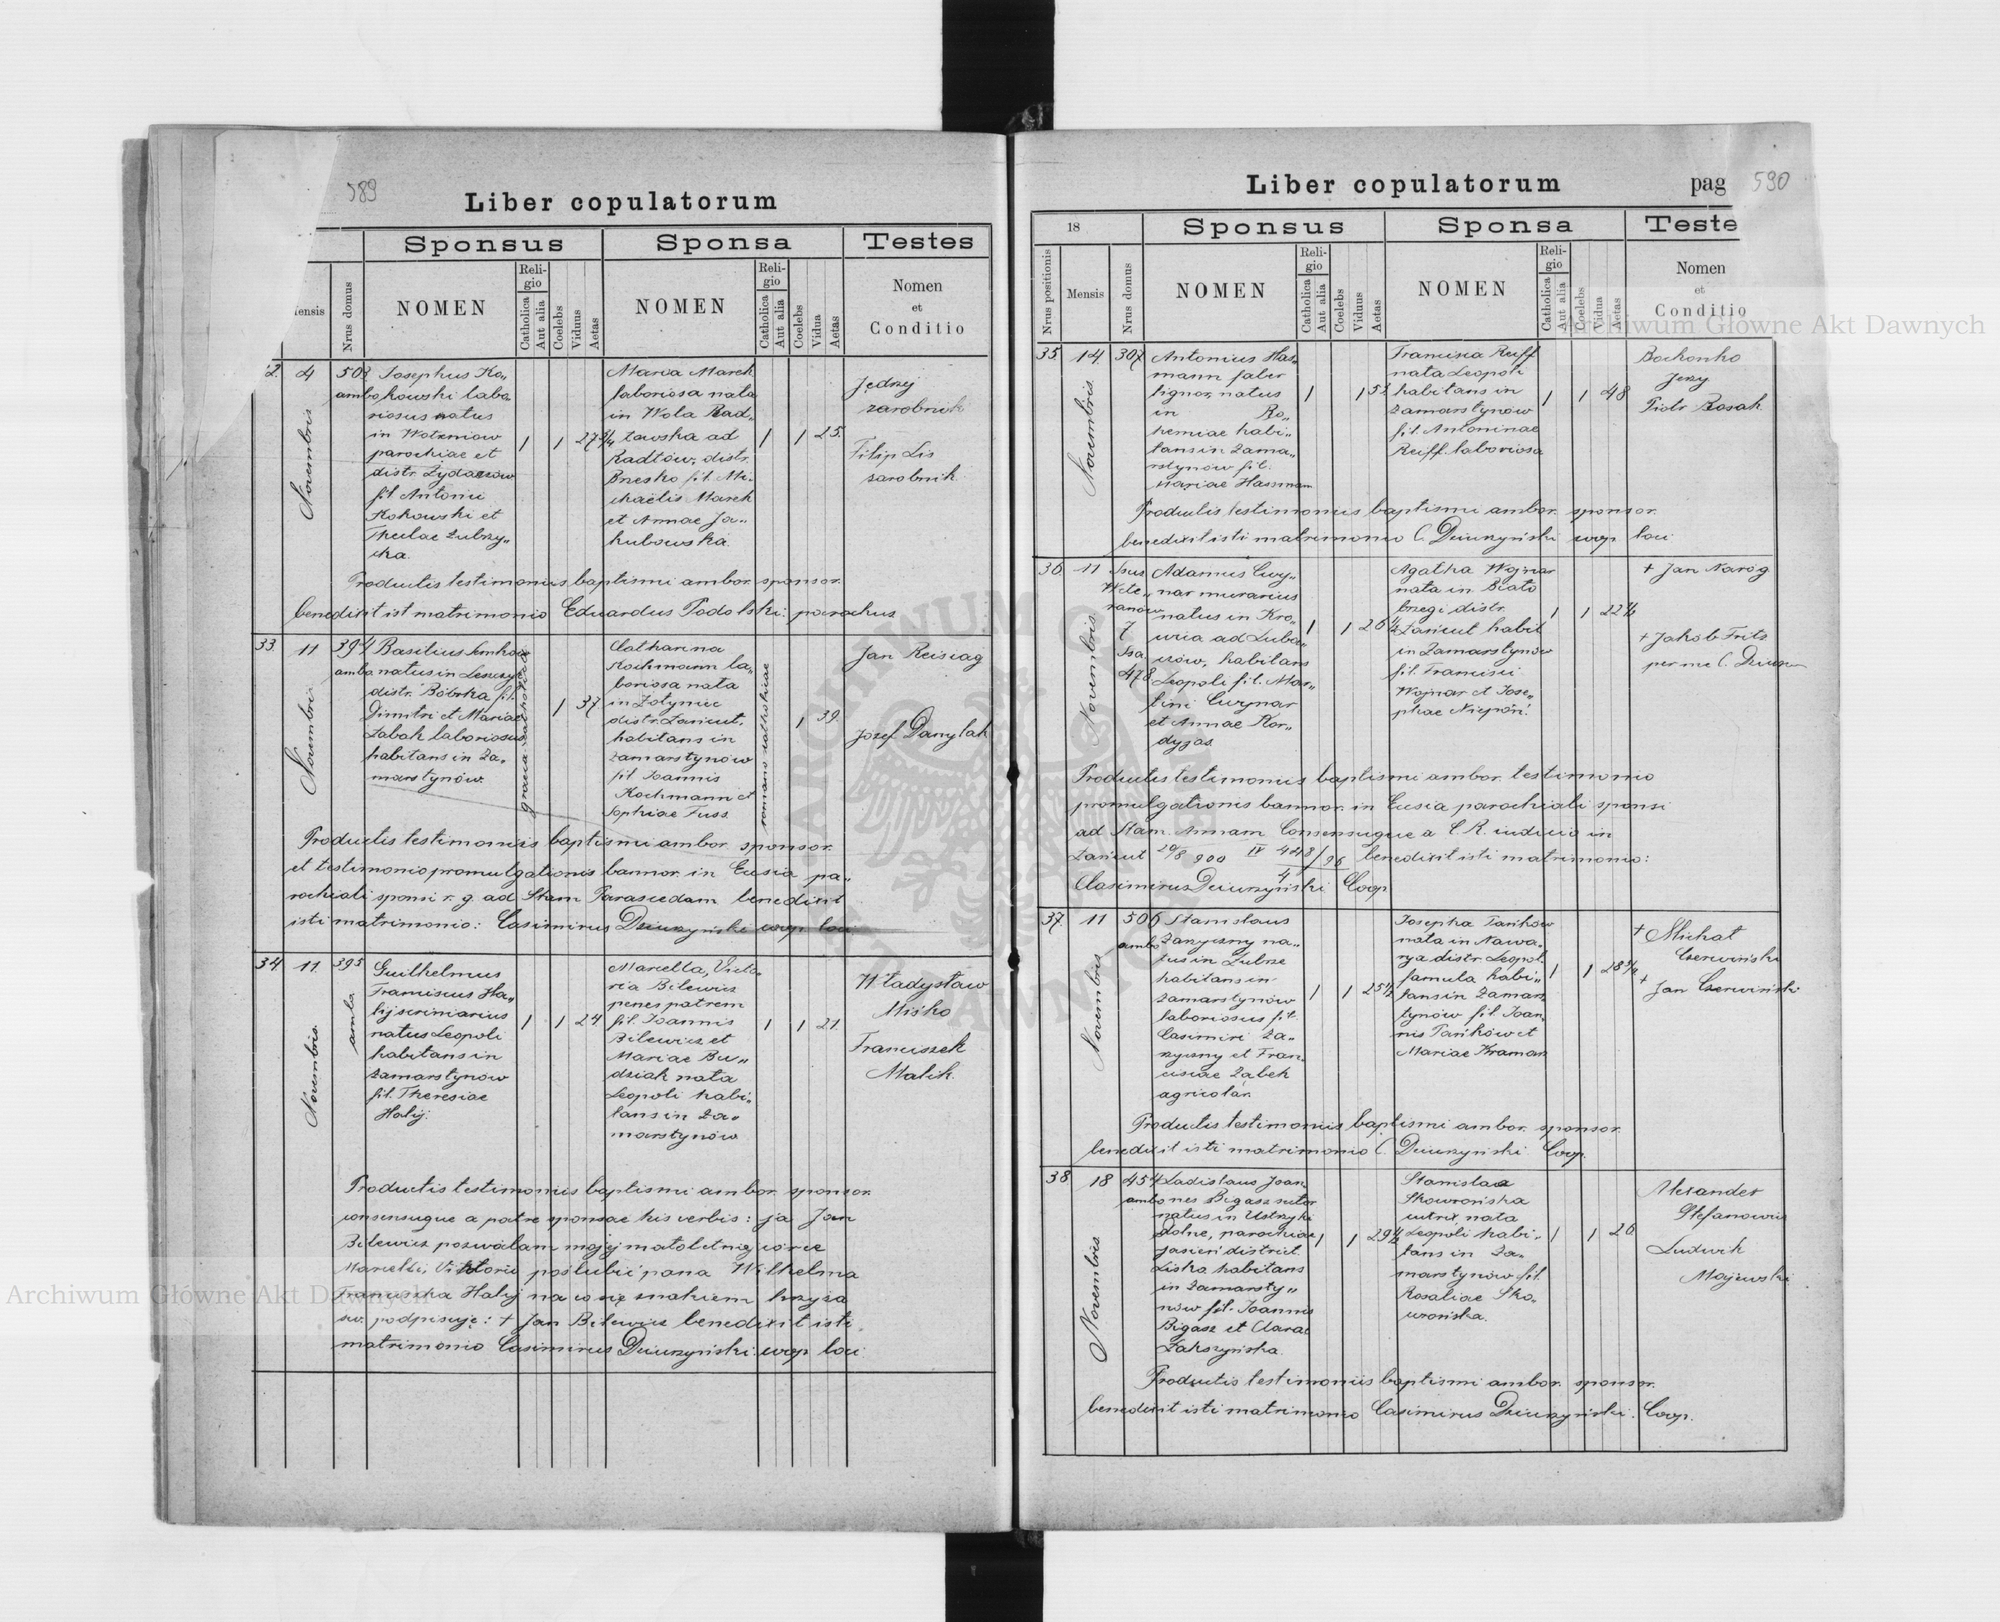 589
Liber copulatorum
Sponsus
Sponsa
Testes
Nrus domus
NOMEN
Religio
Catholica
Aut alia
Coelebs
Viduus
Aetas
NOMEN
Religio
Catholica
Aut alia
Coelebs
Vidua
Aetas
Nomen
et
Conditio
4
Novembris
503
ambo
Josephus Ko„
kowski labo
riosus natus
in
parochiae et
distr.
fil Antonii
Kokowski et
Theclae Zubrzy„
cka.
1 1 27 3/4
Maria Marek
laboriosa nata
in Wola Rad„
łowska ad
Radłów, distr.
Brzesko fil. Mi„
chaelis Marek
et Annae Ja„
kubowska
1 1 25.
Jędrzej
zarobnik
Filip Lis
zarobnik
Productis testimoniis baptismi ambor. sponsor.
benedixit ist matrimonio Eduardus Podolski: parochus
33.
11
Novembris
394
ambo
Basilius
natus in
distr. Bóbrka fil.
Dimitri et Mariae
Zabak laboriosus
habitans in Za„
marstynów.
1 37
Catharina
Kochmann la„
boriosa nata
in Żołynie
distr. Łańcut,
habitans in
Zamarstynów
fil Joannis
Kochmann et
Sophiae Fuss.
romano catholicae
1 39.
Jan Reisiag
Józef Danylak
Productis testimoniis baptismi ambor. sponsor.
et testimonio promulgationis bannor. in Eccsia pa„
rochiali sponsi r. g. ad Stam Parascedam benedixit
isti matrimonio: Casimirus Dziurzyński coop. loci
34
11.
Novembris.
395
ambo
Guilhelmus
Franciscus Ha„
lij scriniarius
natus Leopoli
habitans in
Zamarstynów
fil. Theresiae
Halij.
1 1 24
Marcella, Victo„
ria Bilewicz
penes patrem
fil. Joannis
Bilewicz et
Mariae Bu„
dziak nata
Leopoli habi„
tans in Za„
marstynów
1 1 21.
Władysław
Miśko
Franciszek
Malik.
Productis testimoniis baptismi ambor. sponsor.
consensuque a patre sponsae his verbis: ja Jan
Bilewicz pozwalam mojej małoletniej córce
Marcelli, Viktorii poślubić pana Wilhelma
Franciszka Halij na co się znakiem krzyża
św. podpisuję: + Jan Bilewicz benedixit isti
matrimonio Casimirus Dziurzyński: coop. loci
Liber copulatorum
pag
590
18
Sponsus
Sponsa
Teste
Nrus positionis
Mensis
Nrus domus
NOMEN
Religio
Catholica
Aut alia
Coelebs
Viduus
Aetas
NOMEN
Religio
Catholica
Aut alia
Coelebs
Vidua
Aetas
Nomen
et
Conditio
35.
14.
Novembris.
307
Antonius Has„
mann faber
lignor, natus
in Bo„
hemiae habi„
tans in Zama„
rstynów fil.
Mariae Hassmann
1 1 53
Francisca Reiff
nata Leopoli
habitans in
Zamarstynów
fil. Antoninae
Reiff. laboriosa
1 1 48
Bochonko
Jerzy
Piotr Rosak
Productis testimoniis baptismi ambor. sponsor.
benedixit isti matrimonio C. Dziurzyński coop loci
36.
11
Novembris
478
Adamus Cwy„
nar murarius
natus in Kro„
ad Luba„
czów, habitans
Leopoli fil. Mar„
tini Cwynar
et Annae Kor„
dyzas.
1 1 26
Agatha Wojnar
nata in Biało
brzegi distr.
Łańcut habit
in Zamarstynów
fil. Francisci
Wojnar et Jose„
phae
1 1 22 1/2
+ Jan Naróg
+ Jakób Fritz
per me C. Dziurzyn
Productis testimoniis baptismi ambor. testimonio
promulgationis bannor. in Eccsia parochiali sponsi
ad Stam. Annam Consensuque a C. R. iudicio in
Łańcut 20/8 900 IV 448/96 4 benedixit isti matrimonio:
Casimirus Dziurzyński Coop
37.
11
Novembris
506
ambo
Stanislaus
Zarzyczny na„
tus in Zubrze
habitans in
Zamarstynów
laboriosus fil.
Casimiri Za„
rzyczny et Fran„
ciscae Ząbek
agricolar.
1 1 25 1/2
Josepha Tańków
nata in Nawa„
rya distr. Leopol.
famula habi„
tans in Zamar„
tynów fil. Joan„
nis Tańków et
Mariae Kramar
1 1 28
+ Michał
Czerwiński
+ Jan Czerwiński
Productis testimoniis baptismi ambor. sponsor.
benedixit isti matrimonio C. Dziurzyński Coop.
38
18
Novembris
454
ambo
Ladislaus Joan„
nes Bigasz sutor
natus in Ustrzyki
dolne, parochiae
Jasień district.
Lisko habitans
in Zamarsty„
nów fil. Joannis
Bigasz et Clarae
Zakszyńska.
1 1 29 1/2
Stanislaa
Skowrońska
sutrix nata
Leopoli habi„
tans in Za„
marstynów fil.
Rosaliae Sko„
wrońska.
1 1 26
Alexander
Stefanowicz
Ludwik
Majewski
Productis testimoniis baptismi ambor. sponsor.
benedixit isti matrimonio Casimirus Dziurzyński. Coop.
Archiwum Główne Akt Dawnych
Archiwum Główne Akt Dawnych